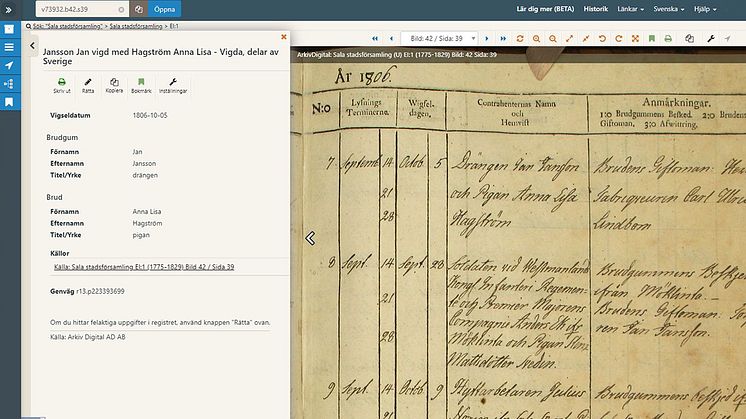 v73932.b42.s39
Öppna
Lär dig mer (BETA) Historik Länkar Svenska Hjälp
Sök: "Sala stadsförsamling" > Sala stadsförsamling > EI:1
Jansson Jan vigd med Hagström Anna Lisa - Vigda, delar av
Sverige
Skriv ut Rätta Kopiera Bokmärk Inställningar
Vigseldatum 1806-10-05
Brudgum
Förnamn Jan
Efternamn Jansson
Titel/Yrke drängen
Brud
Förnamn Anna Lisa
Efternamn Hagström
Titel/Yrke pigan
Källor
Källa: Sala stadsförsamling EI:1 (1775-1829) Bild 42 / Sida 39
Genväg r13.p223393699
Om du hittar felaktiga uppgifter i registret, använd knappen "Rätta" ovan.
Källa: Arkiv Digital AD AB
Bild: 42 / Sida: 39
ArkivDigital: Sala stadsförsamling (U) EI:1 (1775-1829) Bild: 42 Sida: 39
År 1806.
N:o
Lysnings
Terminerne.
Wigsel.
dagen.
Contrahenternas Namn
och
Hemvist
Anmärkningar.
1:o Brudgummens Besked. 2:o Bruden
Giftoman. 3:o Afwittring.
7 Septemb 14 Octob 5 Drängen Jan Jansson Brudens Giftoman:
21 och Pigan Anna Lisa Fabriqueuren Carl Ulric
28 Hagström Lindbom
8 Sept. 14 Sept. 28 Soldaten vid Westmanland Brudgummens
Kongl Infanteri Regemen ifrån Möklinta.
21 Premier Majorens Brudens Giftoman:
Compagnie Anders ren Jan Jansson.
28 Möklinta och Pigan
Mattsdotter Hedin.
9 Sept. 14 Octob. 9 Hyttarbetaren Julius Brudgummens